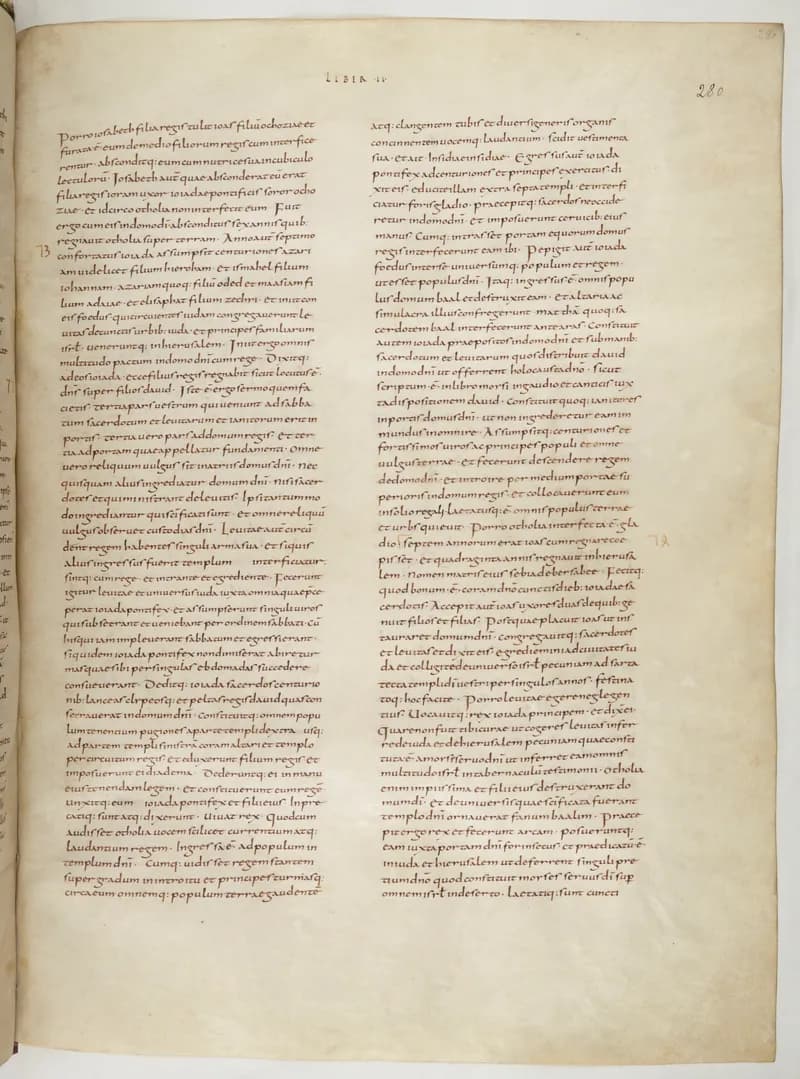 LIBER II
280
Porro iosabeth filia regis tulit ioas filiū ochoziae et
furata ē eum de medio filiorum regis cum interfice
rentur · absconditq: eum cum nutrice sua in cubiculo
lectulorū · Iosabeth aut̄ quae absconderat eū erat
filia regis ioram uxor ioiadae pontificis soror ocho
ziae · et idcirco otholia non interfecit eum Fuit
ergo cum eis in domo dī absconditus sex annis quib:
regnauit otholia super terram · Anno aut̄ septimo
confortatus ioiada assumpsit centuriones azari
am uidelicet filium hieroham · et ismahel filium
iohannam · azariam quoq: filiū oded et maasiam fi
lium adaiae · et elisaphat filium zechri · et iniit con
eis foedus qui circueuntes iudam congregauerunt le
uitas de cunctis urbib: iuda · et principes familiarum
isrł · ueneruntq: in hierusalem · Iniit ergo omnis
multitudo pactum in domo dnī cum rege · Dixitq:
ad eos ioiada · ecce filius regis regnabit sicut locutus ē
dns̄ super filios dauid · Iste ē ergo sermo quem fa
cietis · tertia pars uestrum qui ueniunt ad sabba
tum sacerdotum et leuitarum et ianitorum erit in
portis · tertia uero pars ad domum regis · et ter
tia ad portam quae appellatur fundamenti · Omne
uero reliquum uulgus sit in atriis domus dnī · nec
quisquam alius ingrediatur domum dnī · nisi sacer
dotes et qui ministrant de leuitis · Ipsi tantummo
do ingrediantur quia sc̄ificati sunt · et omne reliquū
uulgus obseruet custodias dnī · Leuitae aut̄ circū
dent regem habentes singuli arma sua · et siquis
alius ingressus fuerit templum interficiatur ·
sintq: cum rege · et intrante et egrediente · Fecerunt
igitur leuitae et uniuersus iuda iuxta omnia quae p̄ce
perat ioiada pontifex · et assumpserunt singuli uiros
qui sub se erant et ueniebant per ordinem sabbati · cū
his qui iam impleuerant sabbatum et egressi erant ·
siquidem ioiada pontifex non dimiserat abire tur
mas quae sibi per singulas ebdomadas succedere
consueuerant · Deditq: ioiada sacerdos centurio
nib: lanceas clypeosq: et peltas regis dauid quas con
secrauerat in domum dnī · constituitq: omnem popu
lum tenentium pugiones a parte templi dextra usq:
ad partem templi sinistrā coram altari et templo
per circuitum regis · et eduxerunt filium regis et
imposuerunt ei diadema · Dederuntq: ei in manu
eius tenendam legem · et constituerunt eum regē ·
unxitq: eum ioiada pontifex et filii eius · Inpre
catiq: sunt atq: dixerunt · Uiuat rex · Quod cum
audisset otholia uocem scilicet currentium atq:
laudantium regem · Ingressa ē ad populum in
templum dnī · Cumq: uidisset regem stantem
super gradum in introitu et principes turmasq:
circa eum omnemq: populum terrae gaudente
73
atq: clangentem tubis et diuersi generis organis
concinnentem uocemq: laudantium · scidit uestimenta
sua · et ait Insidiae insidiae · Egressus aut̄ ioiada
pontifex ad centuriones et principes exercitus di
xit eis · educite illam extra septa templi · et interfi
ciatur foris gladio · praecepitq: sacerdos ne occide
retur in domo dnī · et imposuerunt ceruicib: eius
manus · Cumq: intrasset portam equorum domus
regis interfecerunt eam ibi · Pepigit aut̄ ioiada
foedus inter se · uniuersumq: populum et regem ·
ut esset populus dnī · Itaq: ingressus ē omnis popu
lus domum baal et destruxit eam · Et altaria ac
simulacra illius confregerunt · matthā quoq: sa
cerdotem baal interfecerunt ante aras · Constituit
autem ioiada praepositos in domo dnī et sub manib:
sacerdotum et leuitarum quos distribuit dauid
in domo dnī ut offerrent holocausta dnō · sicut
scriptum ē · in libro mosi in gaudio et canticis iux
ta dispositionem dauid · Constituit quoq: ianitores
in portis domus dnī · ut non ingrederetur eam im
mundus in omni re · Assumpsitq: centuriones et
fortissimos uiros ac principes populi et omne
uulgus terrae · et fecerunt descendere regem
de domo dnī · et introire per medium portae su
perioris in domum regis · et collocauerunt eum
in solio regali · laetatusq: ē omnis populus terrae
et urbs quieuit · Porro otholia interfecta ē gla
dio · septem annorum erat ioas cum regnare coe
pisset · et quadraginta annis regnauit in hierusa
lem · Nomen matris eius sebia de bersabee · Fecitq:
quod bonum ē · coram dnō cunctis dieb: ioiadae sa
cerdotis · Accepit aut̄ ioas uxores duas de quib: ge
nuit filios et filias · Post quae placuit ioas ut ins
tauraret domum dnī · congregauitq: sacerdotes
et leuitas et dixit eis · egredimini ad ciuitates iu
da et colligite de uniuerso isrł pecuniam ad sarta
tecta templi dī uestri per singulos annos · festina
toq: hoc facite · Porro leuitae egere neglegen
tius · Uocauitq: rex ioiada principem · et dixit ei ·
Quare non fuit tibi curae ut cogeres leuitas infer
re de iuda et de hierusalem pecuniam quae consti
tuta ē a mose seruo dnī ut inferret eam omnis
multitudo isrł in tabernaculū testimonii · Otholia
enim impiissima et filii eius destruxerant do
mum dī · et de uniuersis quae sc̄ificata fuerant
templo dnī ornauerat fanum baalim · Praece
pit ergo rex et fecerunt arcam · posueruntq:
eam iuxta portam dnī forinsecus et praedicatū ē ·
in iuda et hierusalem ut deferrent singuli pre
tium dnō quod constituit moyses seruus dī sup̄
omnem isrł in deserto · Laetatiq: sunt cuncti